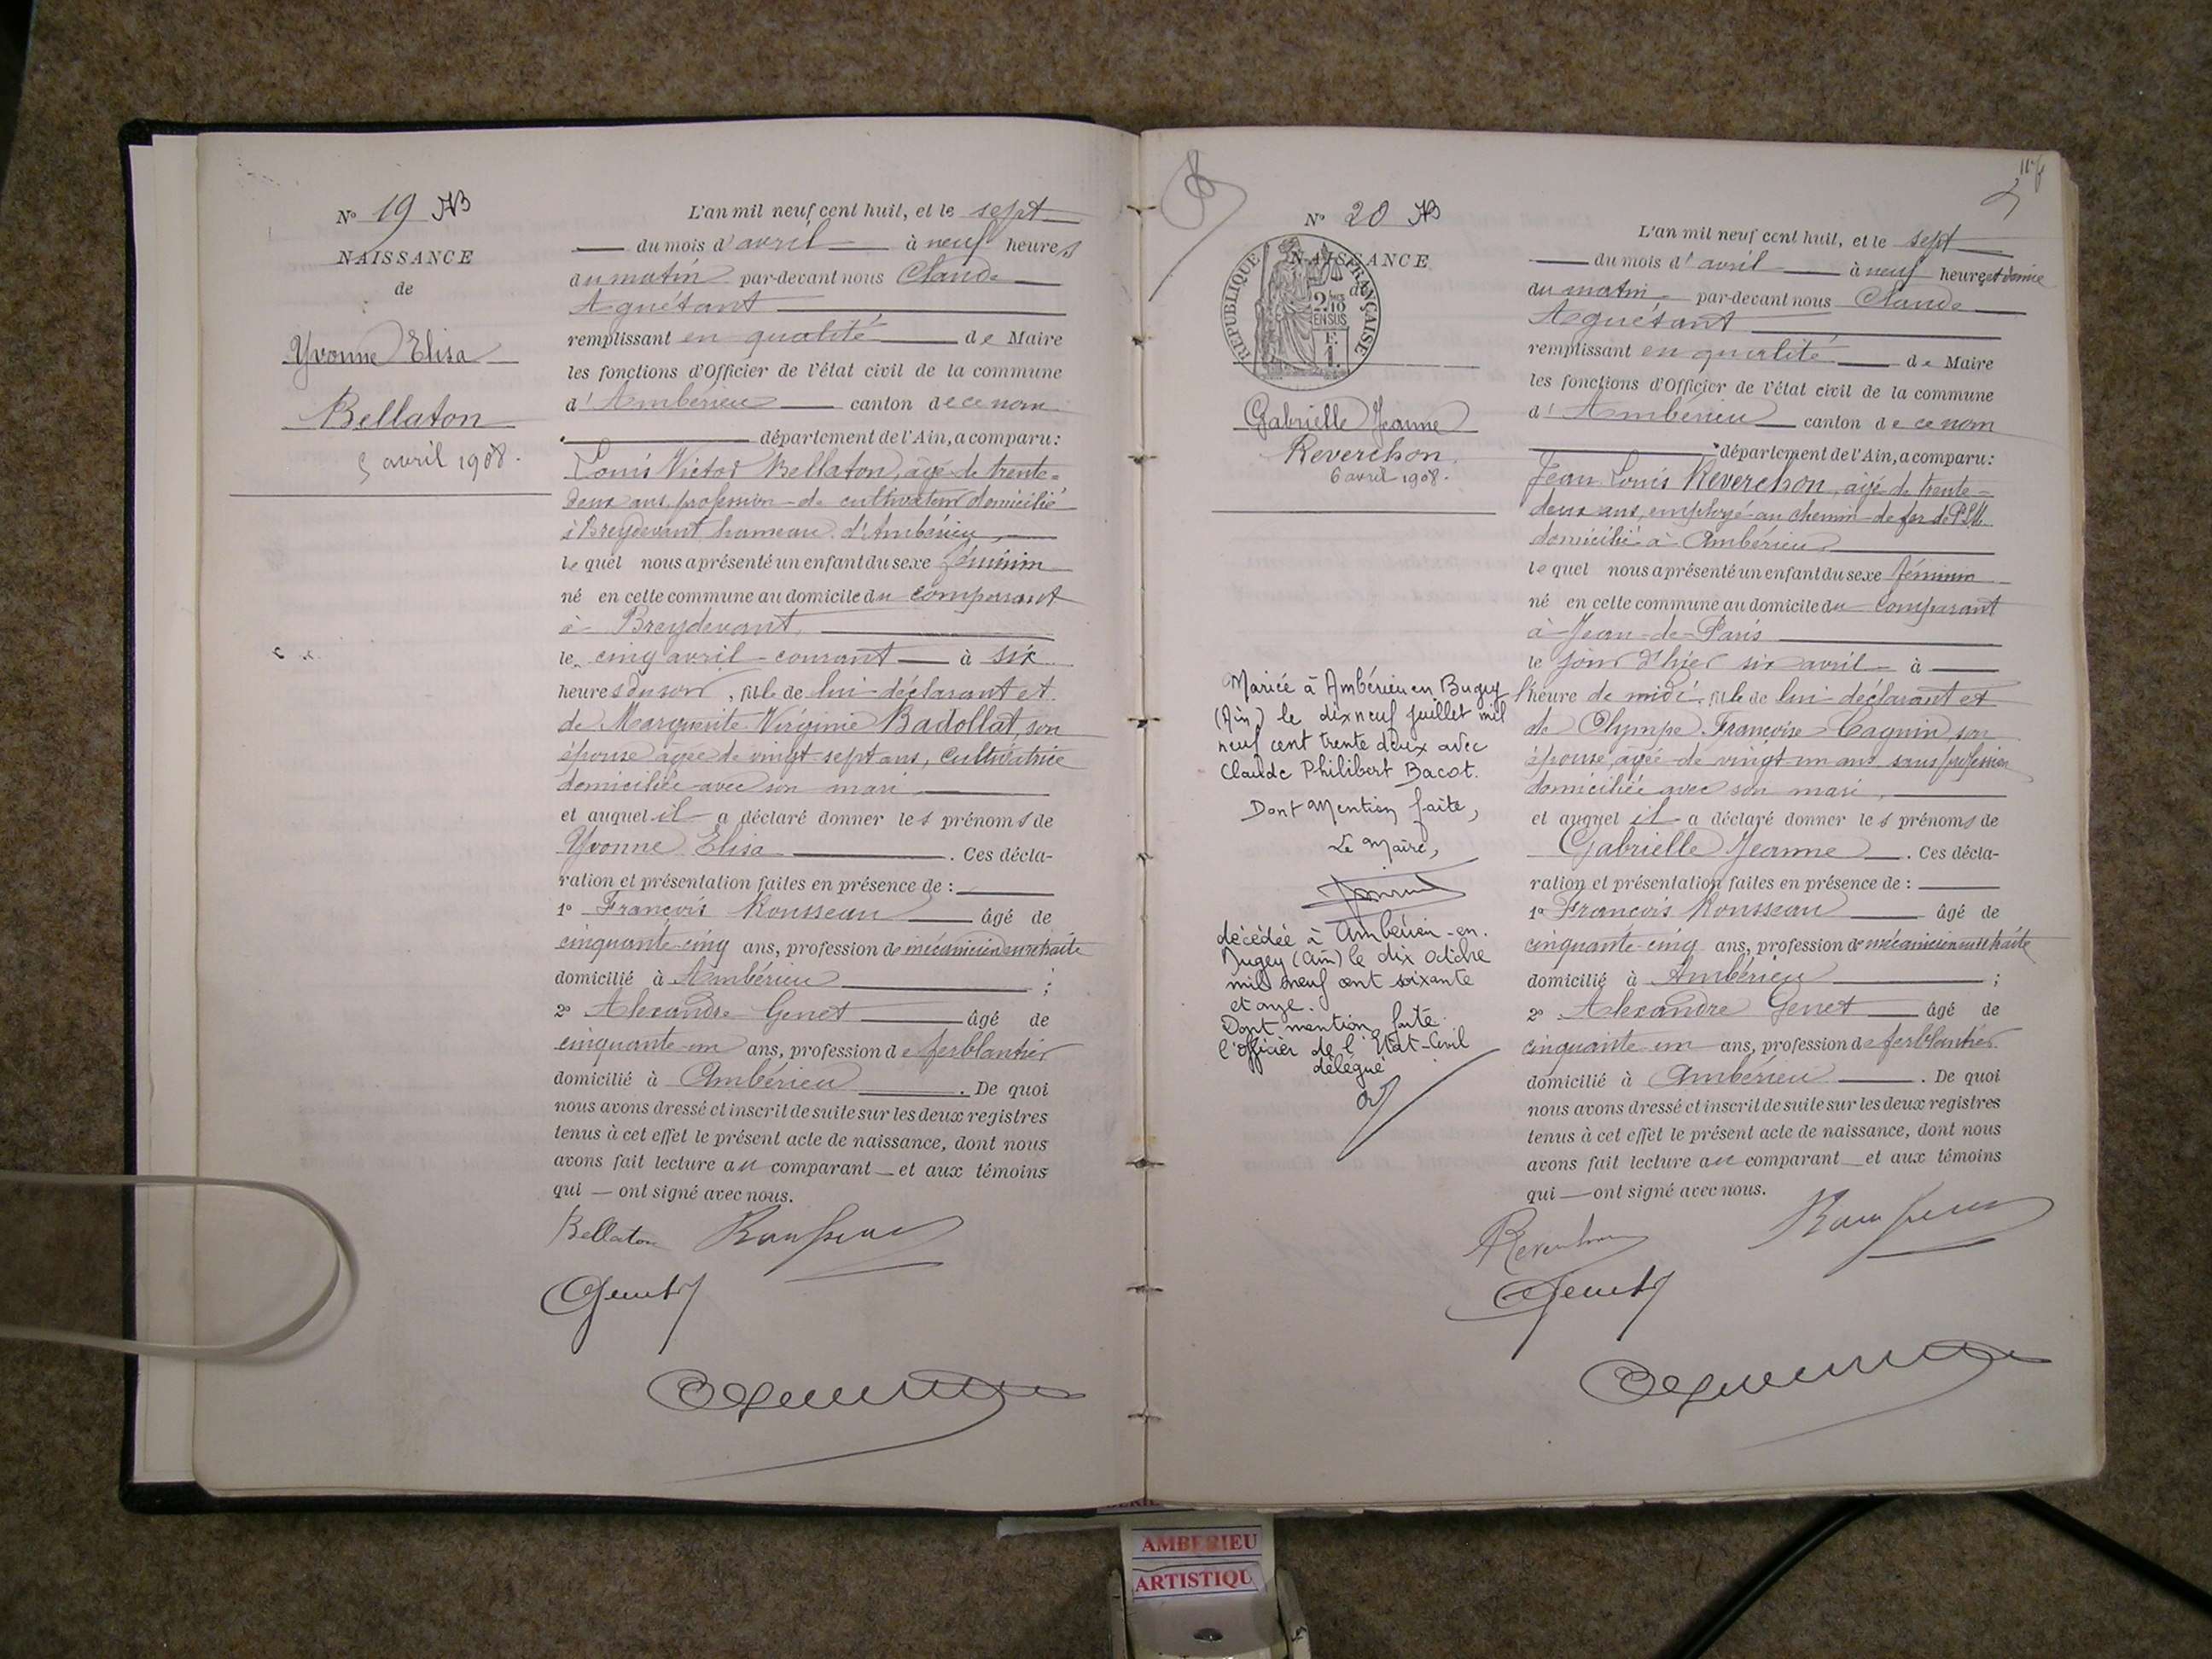 N° 19
NAISSANCE
de
Yvonne Elisa
Bellaton
5 avril 1908.
L'an mil neuf cent huit, et le sept
du mois d'avril à neuf heures
du matin par-devant nous Claude
Aguétant
remplissant en qualité de Maire
les fonctions d'Officier de l'état civil de la commune
d'Ambérieu canton de ce nom
département de l'Ain, a comparu :
Louis Victor Bellaton, âgé de trente-
deux ans, profession de cultivateur domicilié
à Breydevant hameau d'Ambérieu,
lequel nous a présenté un enfant du sexe féminin
né en cette commune au domicile du comparant
à Breydevant,
le cinq avril courant à six
heures du soir, fille de lui déclarant et
de Marguerite Virginie Badollat, son
épouse âgée de vingt-sept ans, cultivatrice
domiciliée avec son mari
et auquel il a déclaré donner les prénoms de
Yvonne Elisa. Ces décla-
ration et présentation faites en présence de :
1° François Rousseau âgé de
cinquante-cinq ans, profession de mécanicien en retraite
domicilié à Ambérieu ;
2° Alexandre Genet âgé de
cinquante-un ans, profession de ferblantier
domicilié à Ambérieu. De quoi
nous avons dressé et inscrit de suite sur les deux registres
tenus à cet effet le présent acte de naissance, dont nous
avons fait lecture au comparant et aux témoins
qui — ont signé avec nous.
Bellaton Rousseau
Genet
N° 20
NAISSANCE
de
RÉPUBLIQUE FRANÇAISE
2/10 EN SUS
F. 1.
Gabrielle Jeanne
Reverchon
6 avril 1908.
Mariée à Ambérieu en Bugey
(Ain) le dix neuf juillet mil
neuf cent trente deux avec
Claude Philibert Bacot.
Dont Mention faite,
Le Maire,
décédée à Ambérieu-en-
Bugey (Ain) le dix octobre
mil neuf cent soixante
et onze.
Dont mention faite.
l'officier de l'Etat-Civil
délégué
L'an mil neuf cent huit, et le sept
du mois d'avril à neuf heures et demie
du matin par-devant nous Claude
Aguétant
remplissant en qualité de Maire
les fonctions d'Officier de l'état civil de la commune
d'Ambérieu canton de ce nom
département de l'Ain, a comparu :
Jean Louis Reverchon, âgé de trente-
deux ans, employé au chemin de fer de P.L.M.
domicilié à Ambérieu
lequel nous a présenté un enfant du sexe féminin
né en cette commune au domicile du comparant
à Jean-de-Paris
le jour d'hier six avril à
l'heure de midi, fille de lui déclarant et
de Olympe Françoise Cagnin, son
épouse, âgée de vingt-un ans, sans profession
domiciliée avec son mari,
et auquel il a déclaré donner les prénoms de
Gabrielle Jeanne. Ces décla-
ration et présentation faites en présence de :
1° François Rousseau âgé de
cinquante-cinq ans, profession de mécanicien en retraite
domicilié à Ambérieu ;
2° Alexandre Genet âgé de
cinquante-un ans, profession de ferblantier
domicilié à Ambérieu. De quoi
nous avons dressé et inscrit de suite sur les deux registres
tenus à cet effet le présent acte de naissance, dont nous
avons fait lecture au comparant et aux témoins
qui — ont signé avec nous.
Reverchon Rousseau
Genet
AMBERIEU
ARTISTIQU